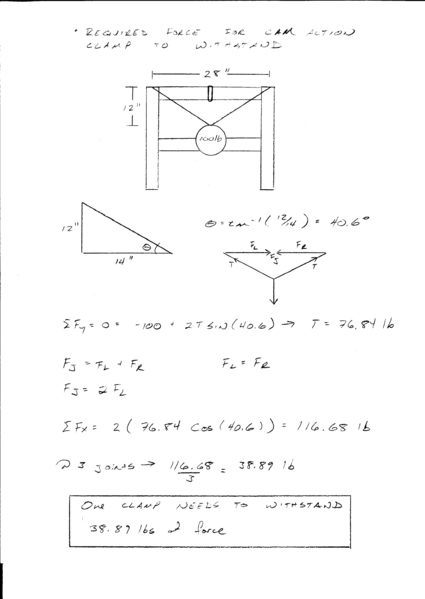 • REQUIRED FORCE FOR CAM ACTION
CLAMP TO WITHSTAND
28"
12"
100 lb
12"
θ
14"
θ = tan⁻¹(12/14) = 40.6°
F_L F_R
F_J
T T
ΣFy = 0 = -100 + 2T sin(40.6) → T = 76.84 lb
F_J = F_L + F_R F_L = F_R
F_J = 2 F_L
ΣFx = 2 ( 76.84 cos(40.6)) = 116.68 lb
@ 3 joints → 116.68/3 = 38.89 lb
One CLAMP NEEDS TO WITHSTAND
38.89 lbs of force